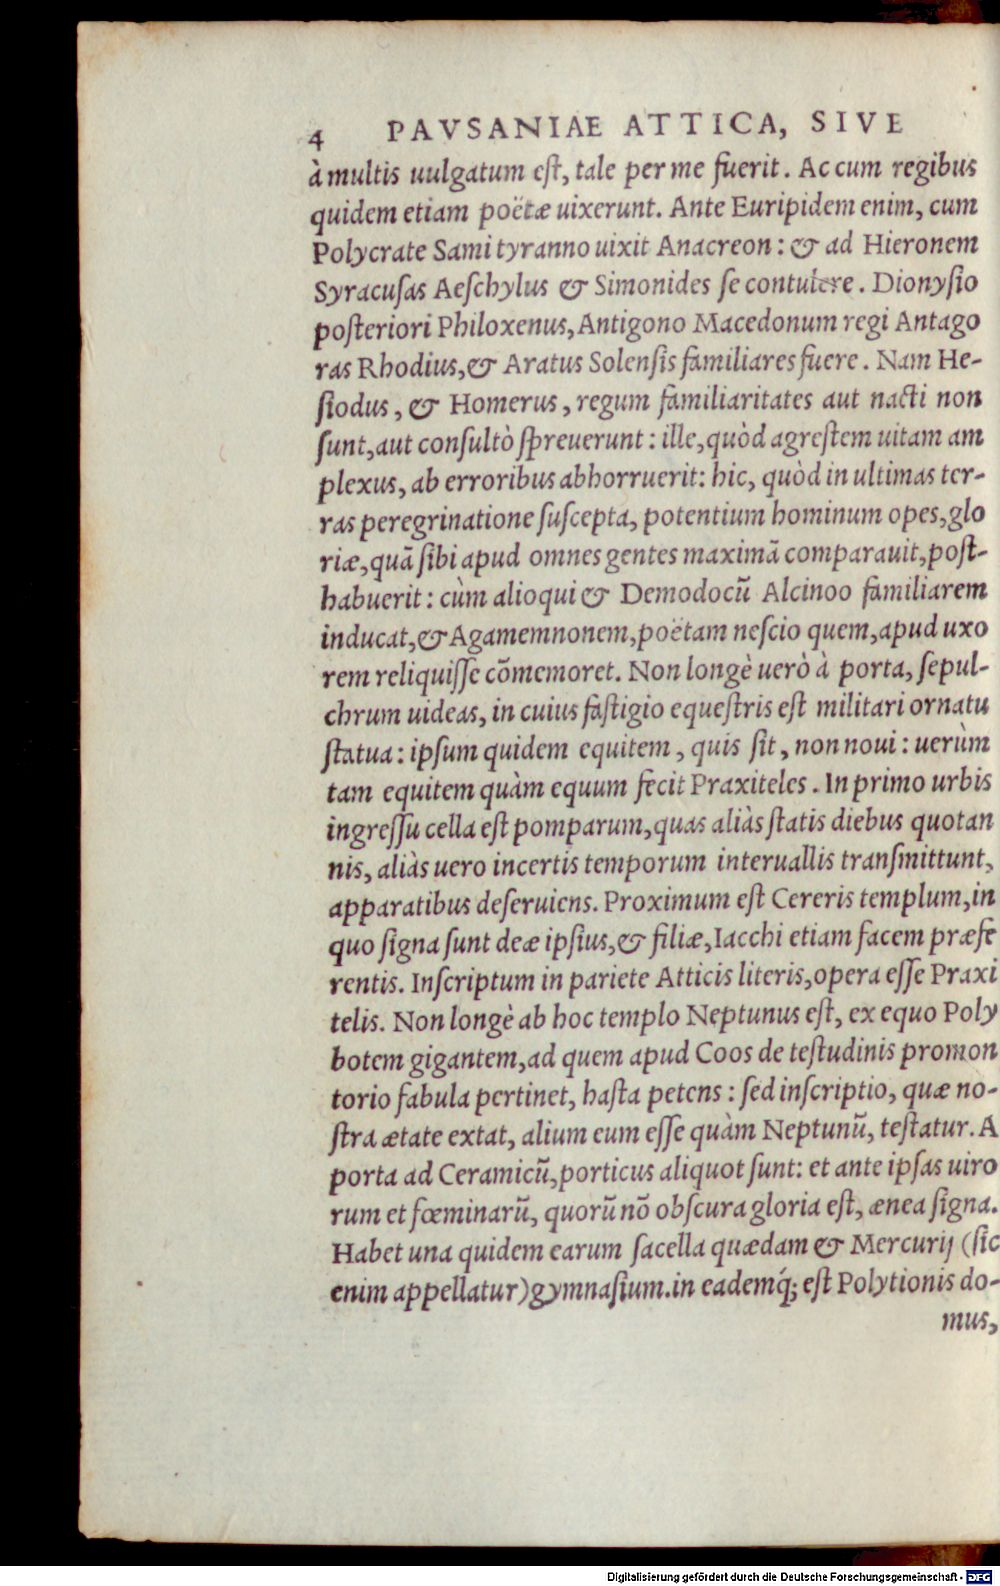 4 PAVSANIAE ATTICA, SIVE
à multis uulgatum eſt, tale per me fuerit. Ac cum regibus
quidem etiam poëtæ uixerunt. Ante Euripidem enim, cum
Polycrate Sami tyranno uixit Anacreon: & ad Hieronem
Syracuſas Aeſchylus & Simonides ſe contulere. Dionyſio
poſteriori Philoxenus, Antigono Macedonum regi Antago
ras Rhodius, & Aratus Solenſis familiares fuere. Nam He-
ſiodus, & Homerus, regum familiaritates aut nacti non
ſunt, aut conſultò ſpreuerunt: ille, quòd agreſtem uitam am
plexus, ab erroribus abhorruerit: hic, quòd in ultimas ter-
ras peregrinatione ſuſcepta, potentium hominum opes, glo
riæ, quã ſibi apud omnes gentes maximã comparauit, poſt-
habuerit: cùm alioqui & Demodocũ Alcinoo familiarem
inducat, & Agamemnonem, poëtam neſcio quem, apud uxo
rem reliquiſſe cõmemoret. Non longè uerò à porta, ſepul-
chrum uideas, in cuius faſtigio equeſtris eſt militari ornatu
ſtatua: ipſum quidem equitem, quis ſit, non noui: uerùm
tam equitem quàm equum fecit Praxiteles. In primo urbis
ingreſſu cella eſt pomparum, quas aliàs ſtatis diebus quotan
nis, aliàs uero incertis temporum interuallis tranſmittunt,
apparatibus deſeruiens. Proximum eſt Cereris templum, in
quo ſigna ſunt deæ ipſius, & filiæ, Iacchi etiam facem præfe
rentis. Inſcriptum in pariete Atticis literis, opera eſſe Praxi
telis. Non longè ab hoc templo Neptunus eſt, ex equo Poly
botem gigantem, ad quem apud Coos de teſtudinis promon
torio fabula pertinet, haſta petens: ſed inſcriptio, quæ no-
ſtra ætate extat, alium eum eſſe quàm Neptunũ, teſtatur. A
porta ad Ceramicũ, porticus aliquot ſunt: et ante ipſas uiro
rum et fœminarũ, quorũ nõ obſcura gloria eſt, ænea ſigna.
Habet una quidem earum ſacella quædam & Mercurij (ſic
enim appellatur) gymnaſium. in eademq́; eſt Polytionis do-
mus,
Digitalisierung gefördert durch die Deutsche Forschungsgemeinschaft - DFG